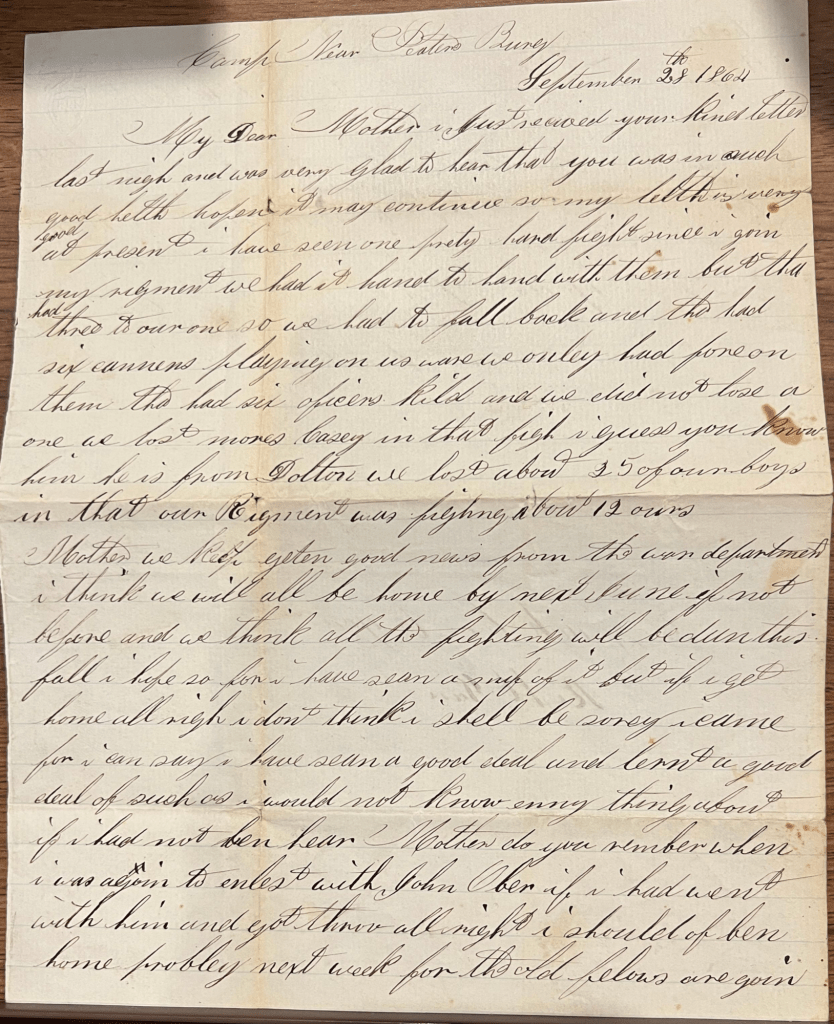 Camp Near Peters Burg
September 28th 1864
My Dear Mother i Just recived your kind letter
last nigh and was very glad to hear that you was in such
good helth hopen it may continue so my helth is very
good
at present i have seen one prety hard fight since i goin
my rigment we had it hand to hand with them but tha
had
three to our one so we had to fall back and tha had
six cannens playing on us ware we onley had fore on
them tha had six oficers kild and we did not lose a
one we lost Casey in that figh i guess you know
him he is from Dolton we lost about 25 of our boys
in that our Rigment was fighting about 12 ours
Mother we keep geten good news from the war department
i think we will all be home by next June if not
before and we think all the fighting will be dun this
fall i hope so for i have sean a nuf of it but if i get
home all righ i dont think i shell be sorey i came
for i can say i have sean a good deal and lernt a good
deal of such as i would not know enny thing about
if i had not ben hear Mother do you rember when
i was agoin to enlest with John Ober if i had went
with him and got throu all right i should of ben
home probley next week for the old felows are goin